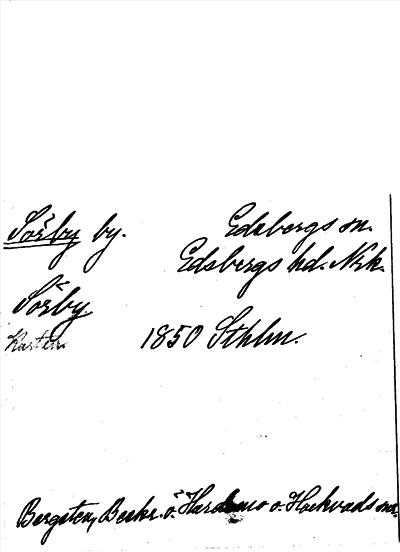 Sörby by. Edsbergs sn.
Edsbergs hd. Nrk.
Sörby
Karten. 1850 Sthlm.
Bergsten, Beskr. ö. Hardemo o. Hackvads snr.